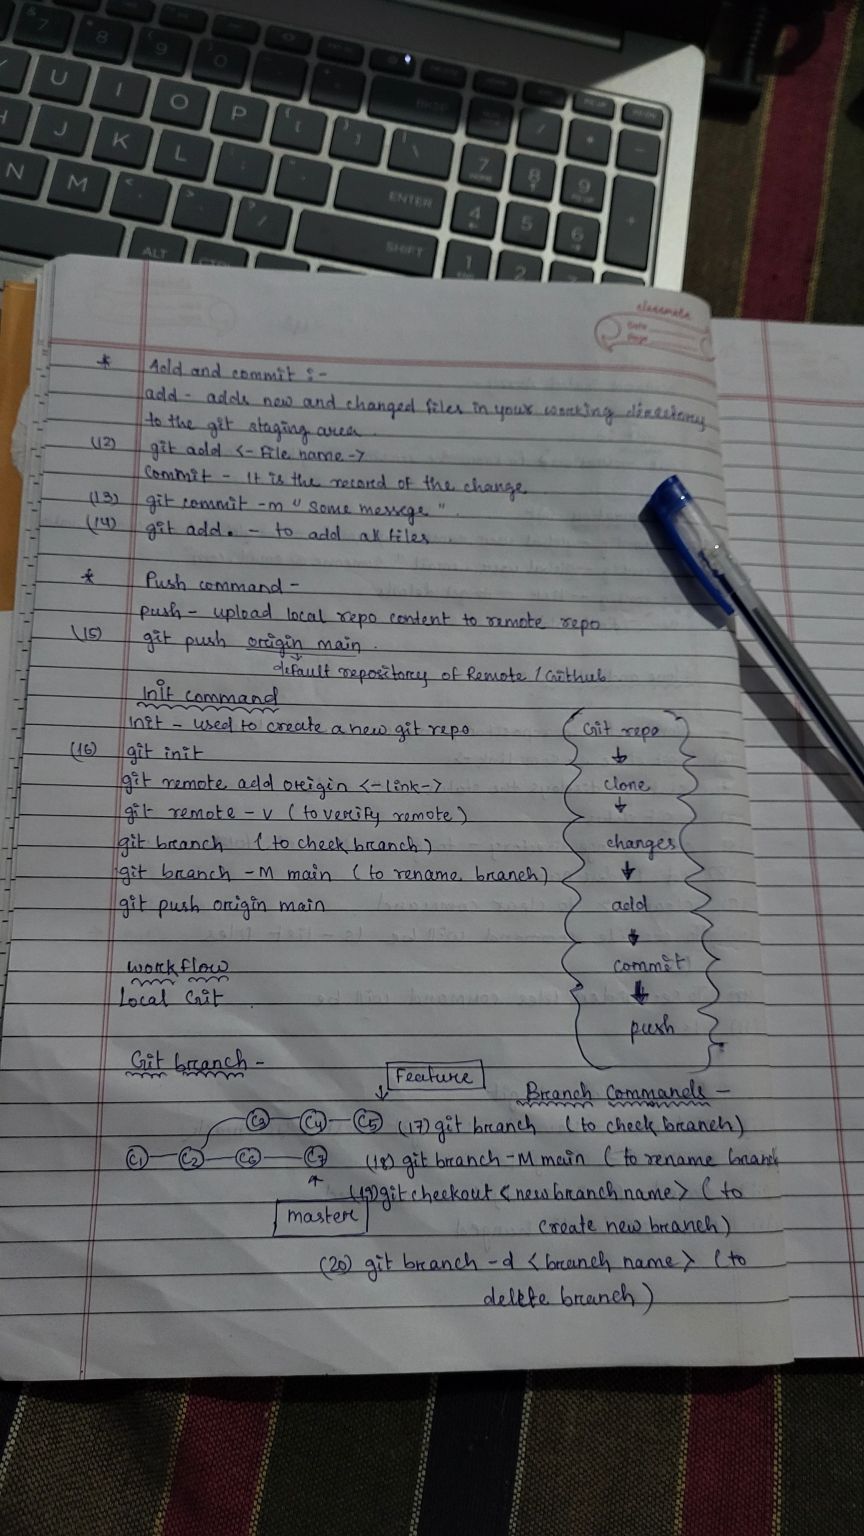 7
8
9
0
BKSP
U
I
O
P
J
K
L
ENTER
7
8
9
N
M
SHIFT
4
5
6
ALT
1
2
classmate
Date
Page
* Add and commit :-
add - adds new and changed files in your working directory
to the git staging area.
(12) git add <- File name ->
Commit - It is the record of the change
(13) git commit -m "Some messege".
(14) git add . - to add all files
* Push command -
push - upload local repo content to remote repo
(15) git push origin main.
default repository of Remote / Github
Init command
Init - used to create a new git repo
(16) git init
git remote add origin <-link->
git remote -v (to verify remote)
git branch (to check branch)
git branch -M main (to rename branch)
git push origin main
Git repo
↓
clone
↓
changes
↓
add
↓
commit
↓
push
workflow
Local Git
Git branch -
Feature
C3 C4 C5
C1 C2 C6 C7
master
Branch Commands -
(17) git branch (to check branch)
(18) git branch -M main (to rename branch
(19) git checkout <new branch name> (to
create new branch)
(20) git branch -d <branch name> (to
delete branch)